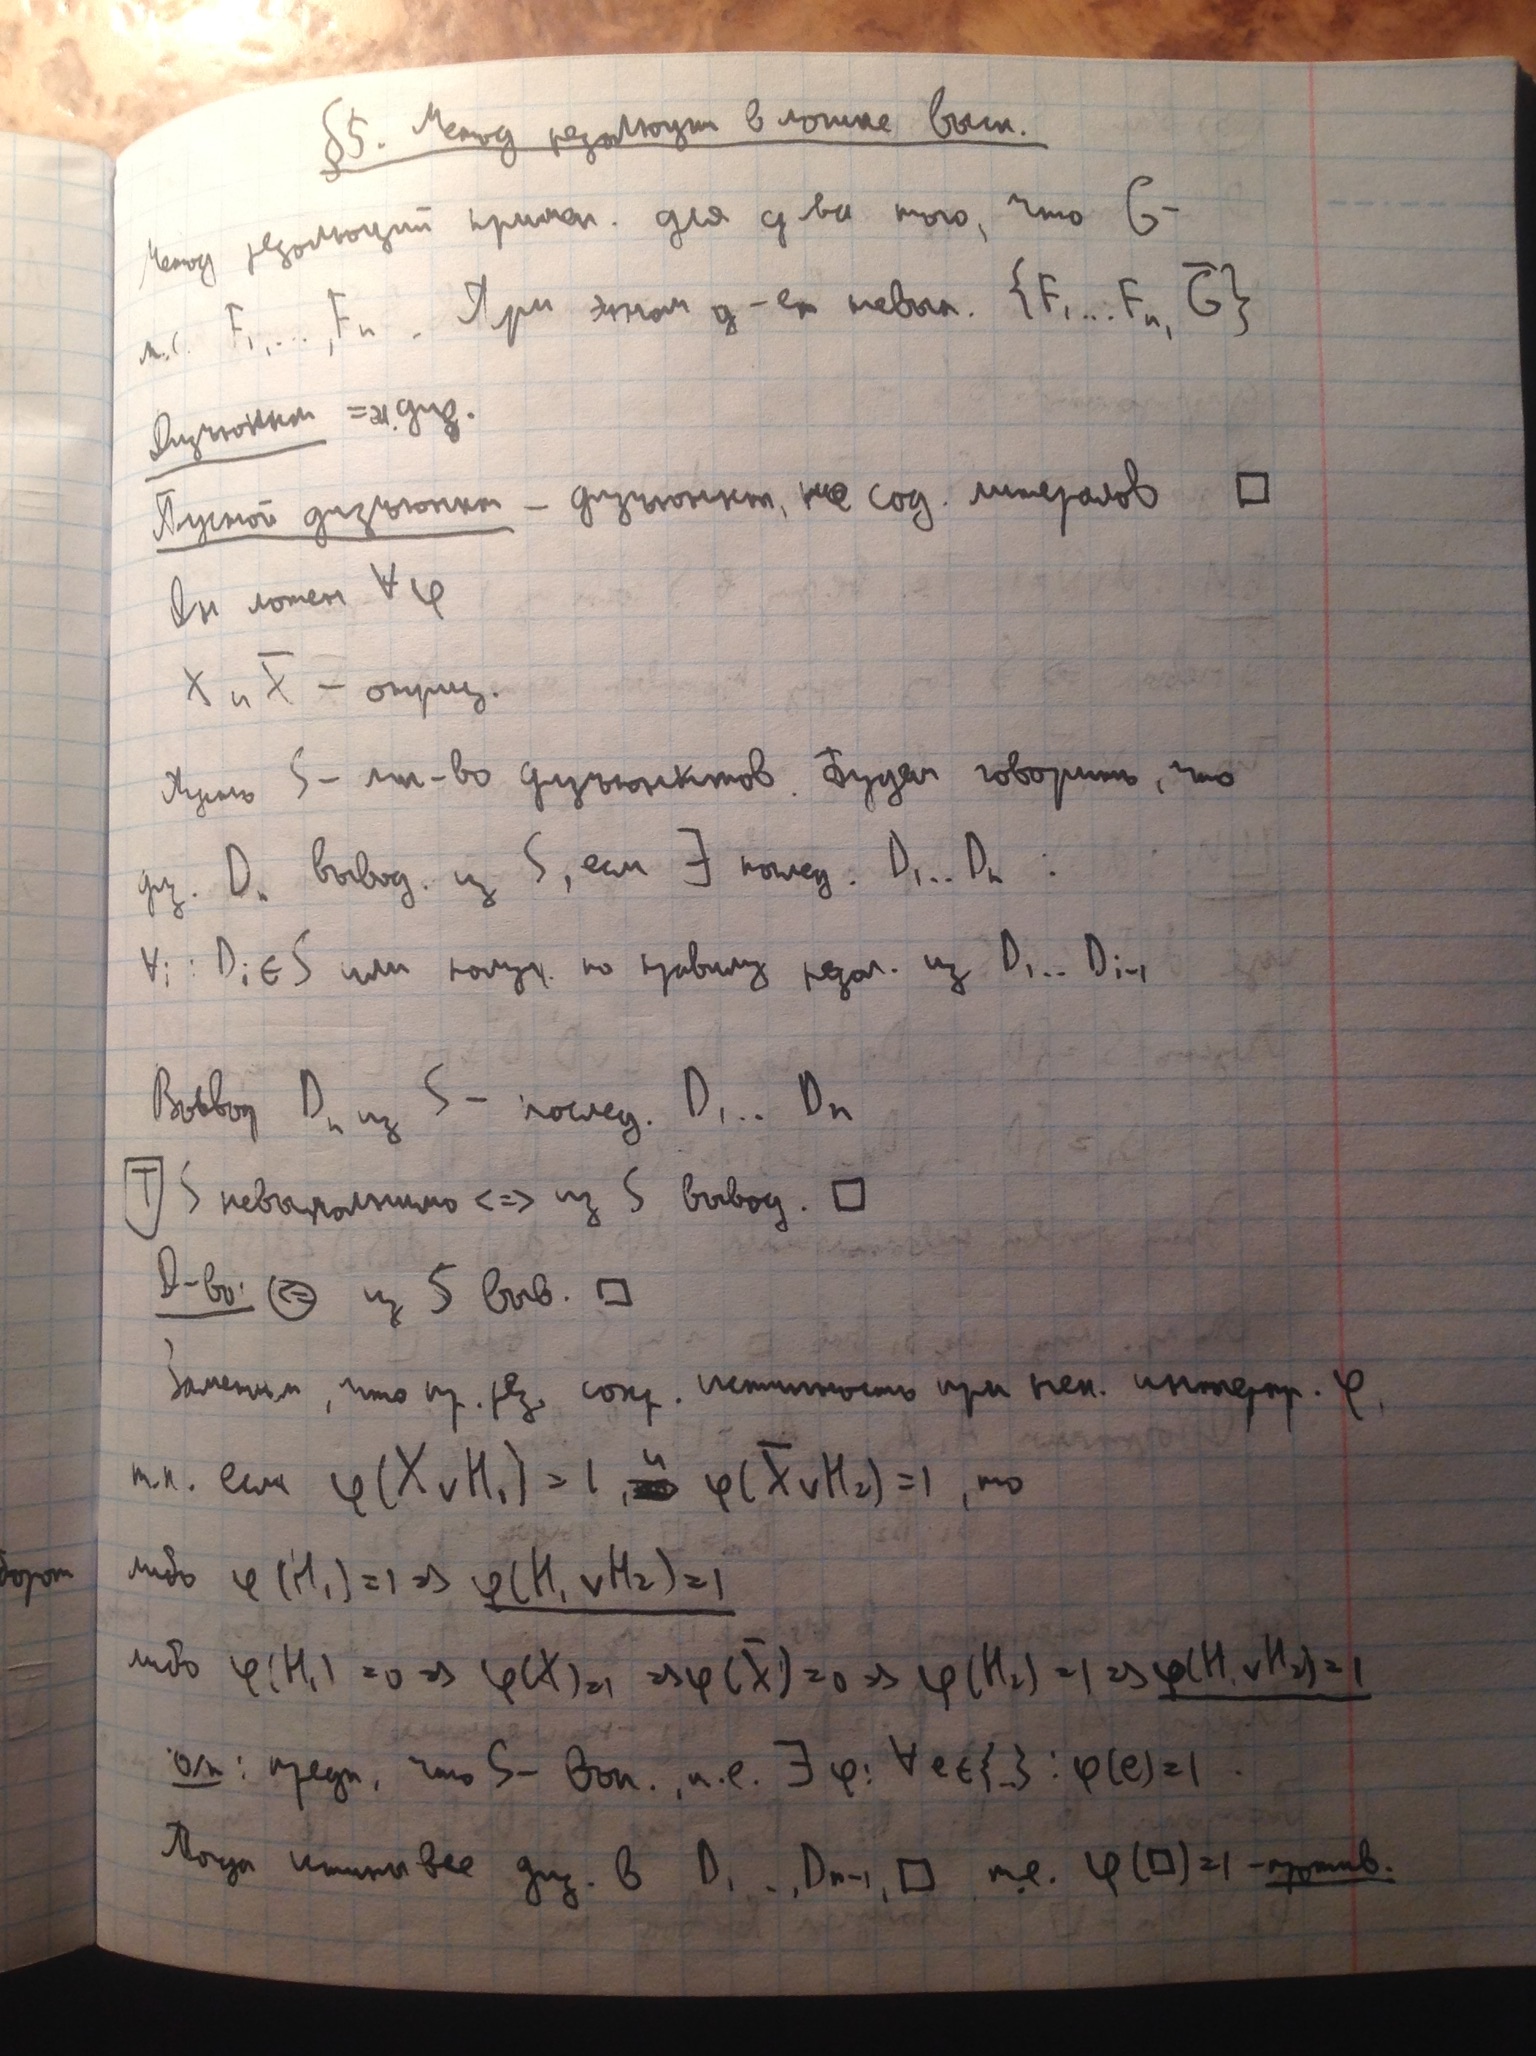 §5. Метод резолюций в логике выск.
Метод резолюций примен. для д-ва того, что G-
л.с. F₁,...,Fₙ. При этом д-ем невып. {F₁...Fₙ, G̅}
Дизъюнкт = диз.
Пустой дизъюнкт – дизъюнкт, не сод. литералов □
Он ложен ∀φ
X и X̅ –
Пусть S – мн-во дизъюнктов. Будем говорить, что
диз. Dₙ вывод. из S, если ∃ послед. D₁...Dₙ :
∀i : Dᵢ∈S или получ. по правилу резол. из D₁...Dᵢ₋₁
Вывод Dₙ из S – послед. D₁... Dₙ
T S невыполнимо <=> из S вывод. □
Д-во: <= из S выв. □
Заметим, что пр. рез. сохр. истинность при нек. интерпр. φ,
т.к. если φ(X∨H₁)=1, и φ(X̅∨H₂)=1, то
либо φ(H₁)=1 => φ(H₁∨H₂)=1
либо φ(H₁)=0 => φ(X)=1 => φ(X̅)=0 => φ(H₂)=1 => φ(H₁∨H₂)=1
оп: предп, что S – вып., т.е. ∃φ: ∀e∈{...} : φ(e)=1.
Тогда истины все диз. в D₁...,Dₙ₋₁, □ т.е. φ(□)=1 – против.
борот